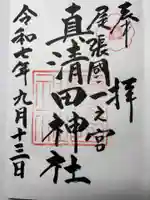 奉拝
尾張國一之宮
真清田神社
令和七年九月十三日